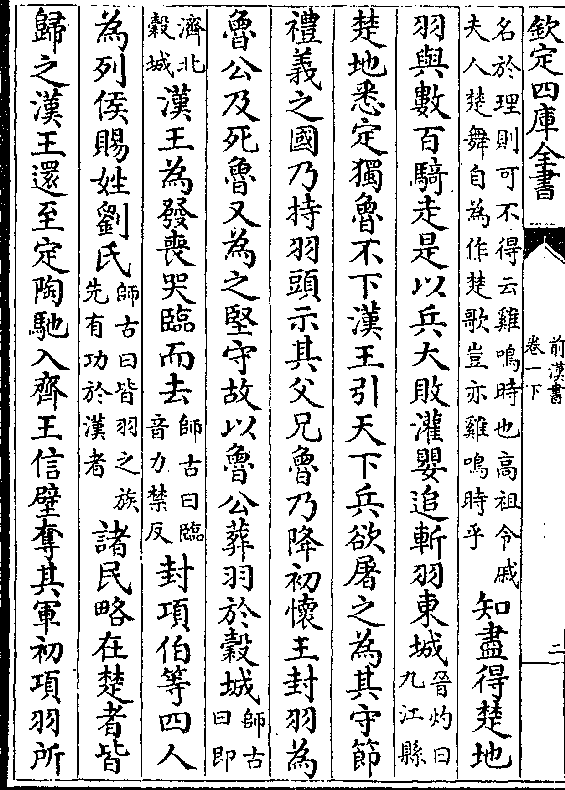 欽定四庫全書
前漢書
卷一下
二
名於理則可不得云雞鳴時也高祖令戚
夫人楚舞自為作楚歌豈亦雞鳴時乎
知盡得楚地
羽與數百騎走是以兵大敗灌嬰追斬羽東城
晉灼曰
九江縣
楚地悉定獨魯不下漢王引天下兵欲屠之為其守節
禮義之國乃持羽頭示其父兄魯乃降初懷王封羽為
魯公及死魯又為之堅守故以魯公葬羽於穀城
師古
曰即
濟北
穀城
漢王為發喪哭臨而去
師古曰臨
音力禁反
封項伯等四人
為列侯賜姓劉氏
師古曰皆羽之族
先有功於漢者
諸民略在楚者皆
歸之漢王還至定陶馳入齊王信壁奪其軍初項羽所